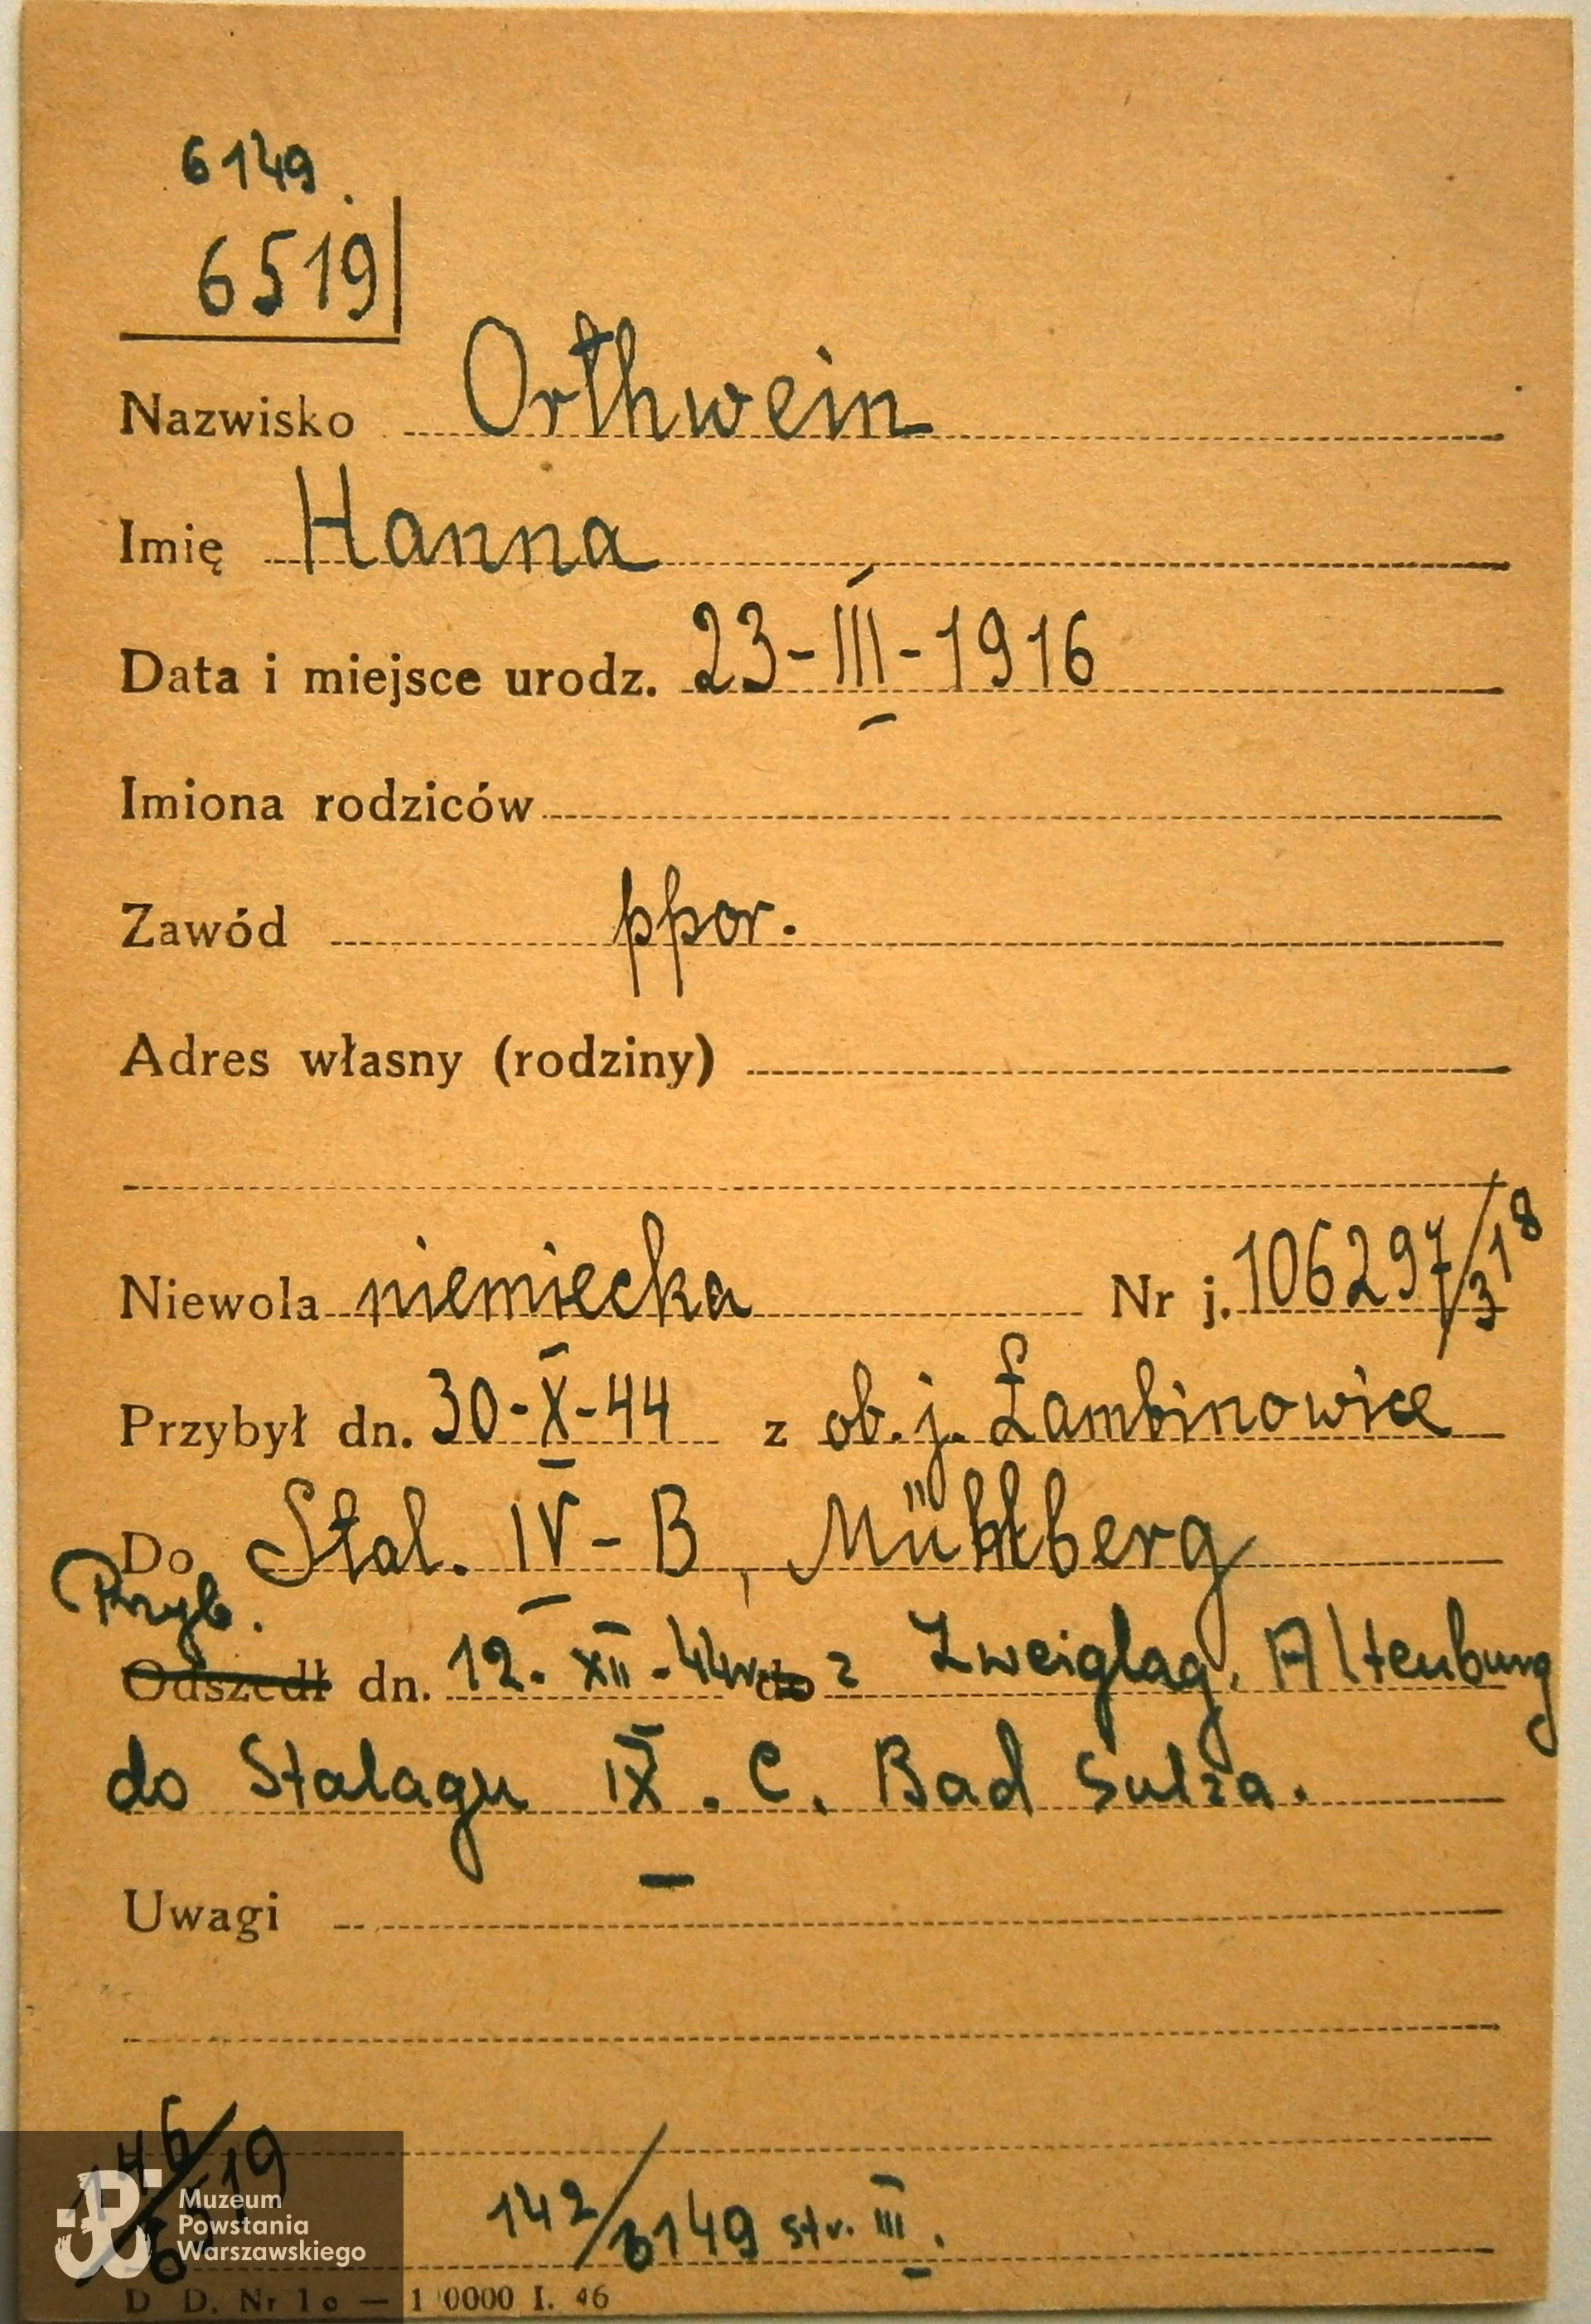 6149.
6519
Nazwisko Orthwein
Imię Hanna
Data i miejsce urodz. 23-III-1916
Imiona rodziców
Zawód ppor.
Adres własny (rodziny)
Niewola niemiecka Nr j. 106297/318
Przybył dn. 30-X-44 z ob. j. Łambinowice
Do Stal. IV-B, Mühlberg
Przyb.
Odszedł dn. 12. XII-44r do z Zweiglag. Altenburg
do Stalagu IX. C. Bad Sulza.
Uwagi
146/6519
142/6149 str. III.
Muzeum
Powstania
Warszawskiego
D D. Nr 1 o — 1 0000 I. 46